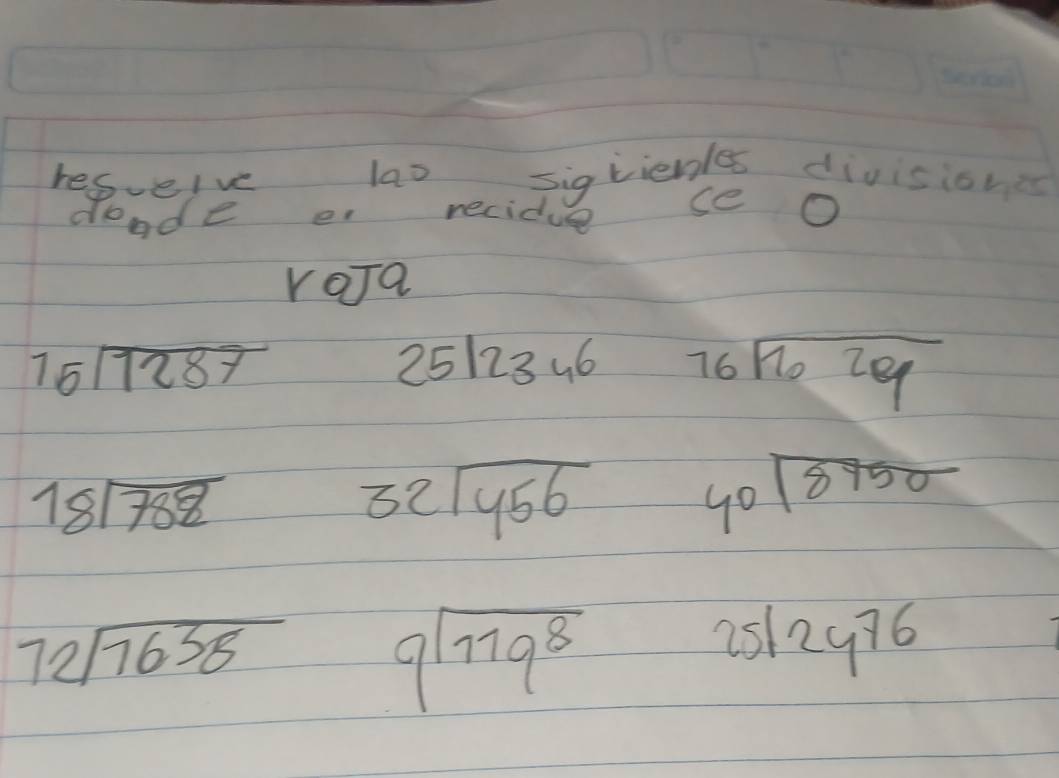 resuelve las siguientes divisiones
donde el reciduo se 0
roja
15 1287 25 2346 16
18 788 32 456 40 8750
12 1638 9 1198 25 2476